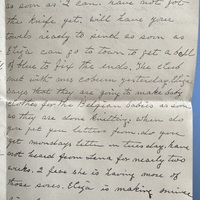 as soon as I can. have not got
the knife yet. will have your
towels ready to send as soon as
Eliza can go to town to get a ball
of blue to fix the ends. The club
met with mrs coburn yesterday. Eliza
says that they are going to make baby
clothes for the Belgian babies as soon
as they are done knitting. when do
you get your letters from. do you
get mondays letter on tuesday. have
not heard from Lena for nearly two
weeks. I fear she is having more of
those sores. Eliza is making mince